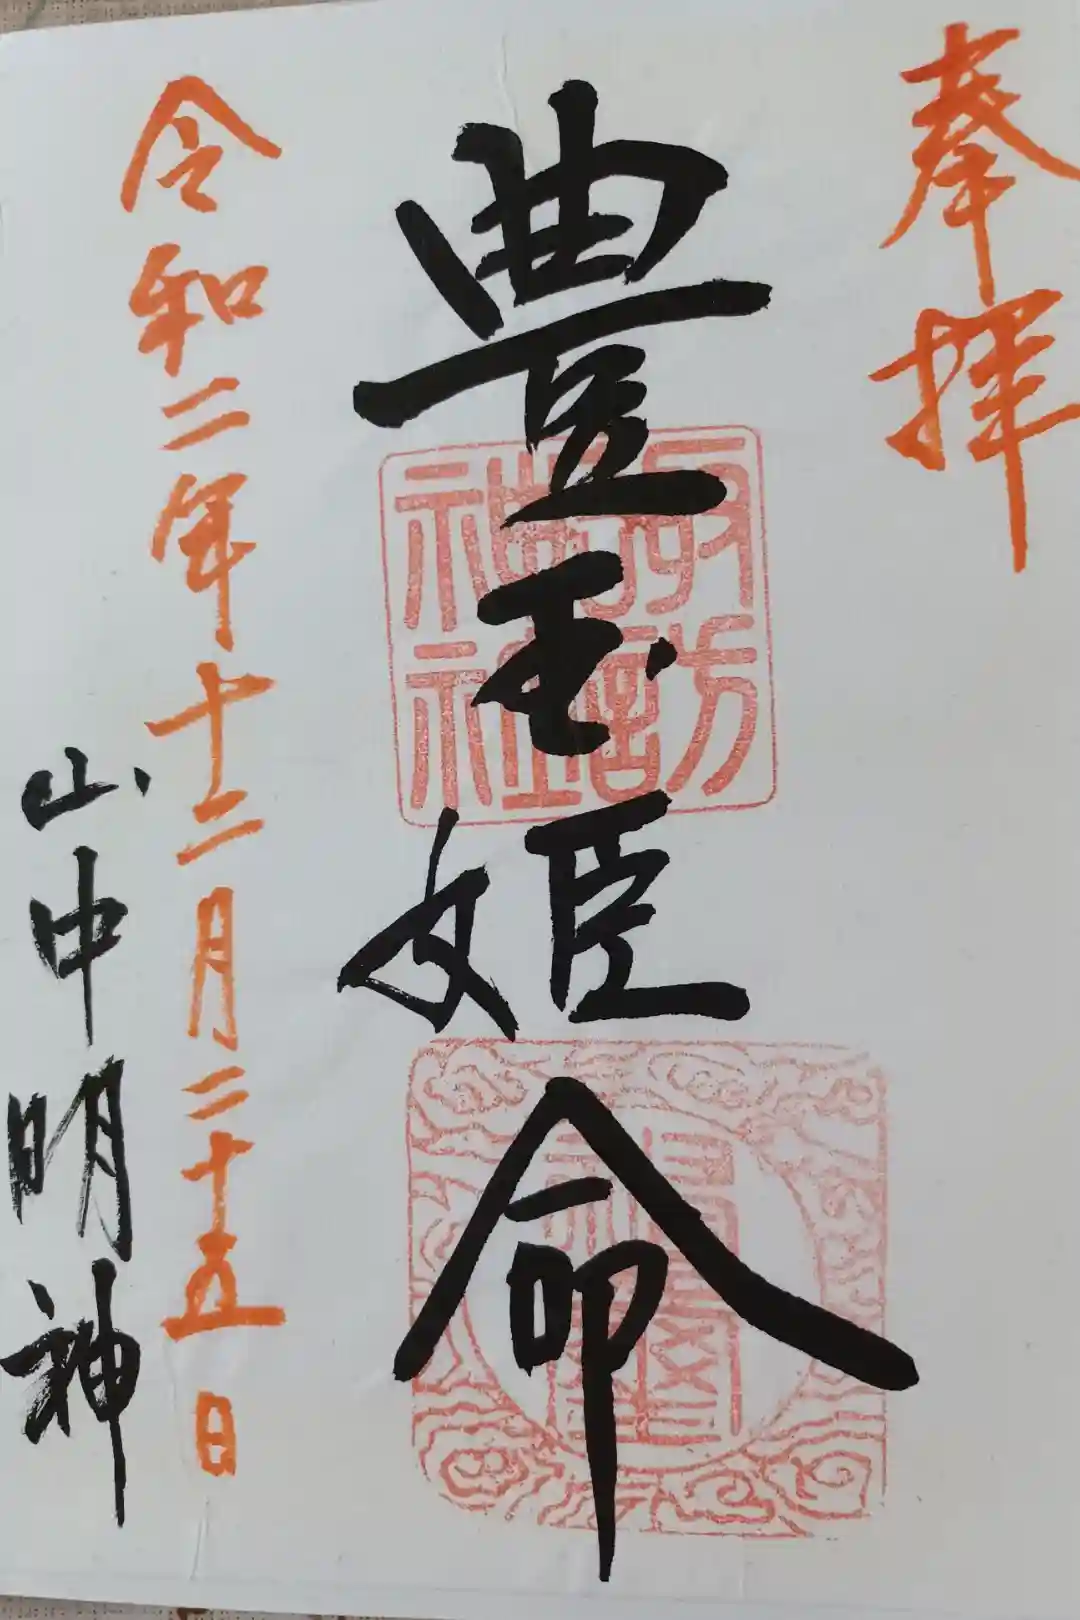 奉拝
豊玉姫命
諏訪神社
令和二年十二月二十五日
山中明神